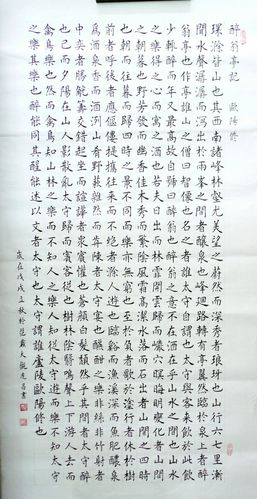 醉翁亭記 歐陽修
環滁皆山也其西南諸峰林壑尤美望之蔚然而深秀者琅琊也山行六七里漸
聞水聲潺潺而瀉出於兩峯之間者釀泉也峰迴路轉有亭翼然臨於泉上者醉
翁亭也作亭誰山之僧智僊也名之者誰太守自謂也太守與客來飲於此飲
少輒醉而年又最高故自號曰醉翁也醉翁之意不在酒在乎山水之間也山水
之樂得之心而寓之酒也若夫日出而林霏開雲歸而巖穴暝晦明變化者山間
之朝暮也野芳發而幽香佳木秀而繁陰風霜高潔水落而石出者山間之四時
也朝而往暮而歸四時之景不同而樂亦無窮也至於負者歌於塗行者休於樹
前者呼後者應傴僂提攜往來而不絕者滁人遊也臨谿而漁溪深而魚肥釀泉
為酒泉香而酒洌山肴野蔌雜然而前陳者太守宴也宴酣之樂非絲非竹射者
中奕者勝觥籌交錯起坐而諠譁者衆賓懽也蒼顏白髮頹然乎其間者太守醉
也已而夕陽在山人影散亂太守歸而賓客從也樹林陰翳鳴聲上下游人去而
禽鳥樂也然而禽鳥知山林之樂而不知人之樂人知從太守遊而樂不知太守
之樂其樂也醉能同其醒能述以文者太守也太守謂誰廬陵歐陽修也
歲在戊戌立秋於 大觀 書